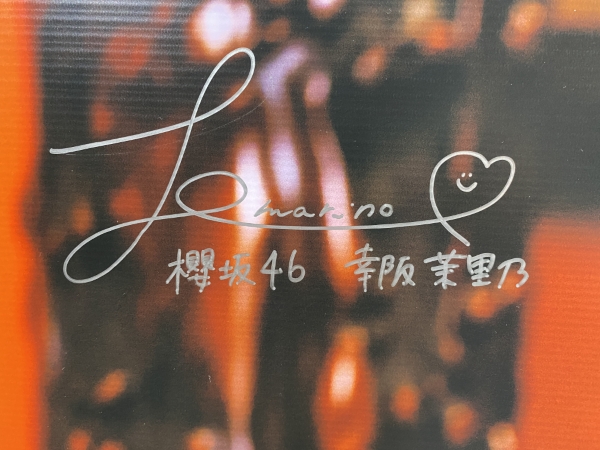 marino
櫻坂46 幸阪茉里乃